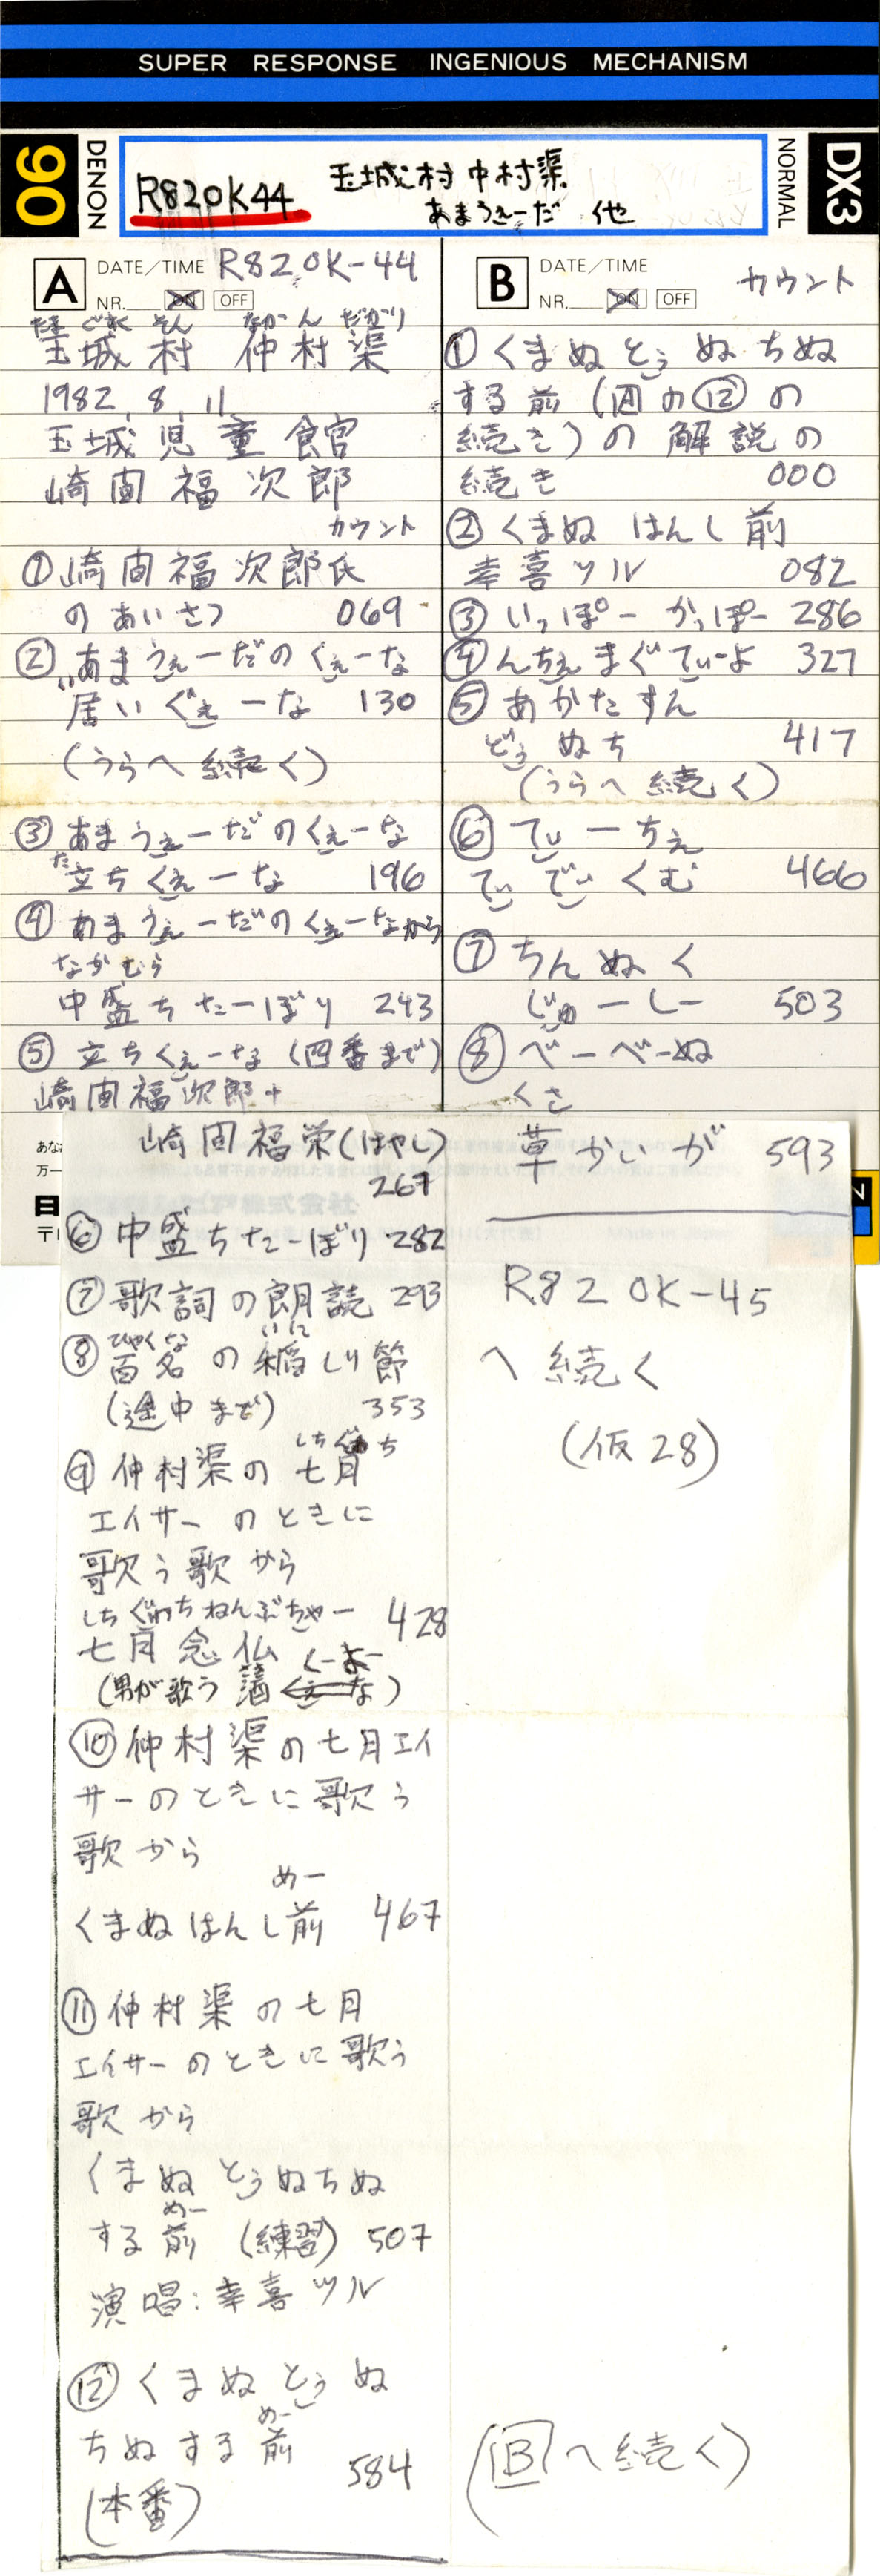 SUPER RESPONSE INGENIOUS MECHANISM
90
DENON
R820K44
玉城村 中村渠
あまうぇーだ 他
NORMAL
DX3
A
DATE/TIME R820K-44
NR. ON OFF
たまぐすくそん なかんだかり
玉城村 仲村渠
1982.8.11
玉城児童館
崎間福次郎
カウント
①崎間福次郎氏
のあいさつ 069
②あまうぇーだのくぇーな
居いぐぇーな 130
(うらへ続く)
③あまうぇーだのくぇーな
た
立ちくぇーな 196
④あまうぇーだのくぇーなから
なかむら
中盛ちたーぼり 243
⑤立ちくぇーな(四番まで)
崎間福次郎+
崎間福栄(はやし)
267
⑥中盛ちたーぼり 282
⑦歌詞の朗読 293
ひゃくな いに
⑧百名の稲しり節
(途中まで) 353
しちぐゎち
⑨仲村渠の七月
エイサーのときに
歌う歌から
しちぐゎちねんぶちゃー 428
七月念仏
くーよー
(男が歌う
くぇーな)
⑩仲村渠の七月エイ
サーのときに歌う
歌から
めー
くまぬはんし前 467
⑪仲村渠の七月
エイサーのときに歌う
歌から
くまぬとぅぬちぬ
めー
する前(練習) 507
演唱:幸喜ツル
⑫くまぬとぅぬ
めー
ちぬする前
584
(本番)
B
DATE/TIME
NR. ON OFF
カウント
①くまぬとぅぬちぬ
する前(囚の⑫の
続き)の解説の
続き 000
②くまぬはんし前
幸喜ツル 082
③いっぽーかっぽー 286
④んちぇまぐてぃーよ 327
⑤あかたすん
どぅぬち 417
(うらへ続く)
⑥てぃーちぇ
てぃでぃくむ 466
⑦ちんぬく
じゅーしー 503
⑧べーべーぬ
くさ
草かいが 593
R820K-45
へ続く
(仮28)
(Bへ続く)